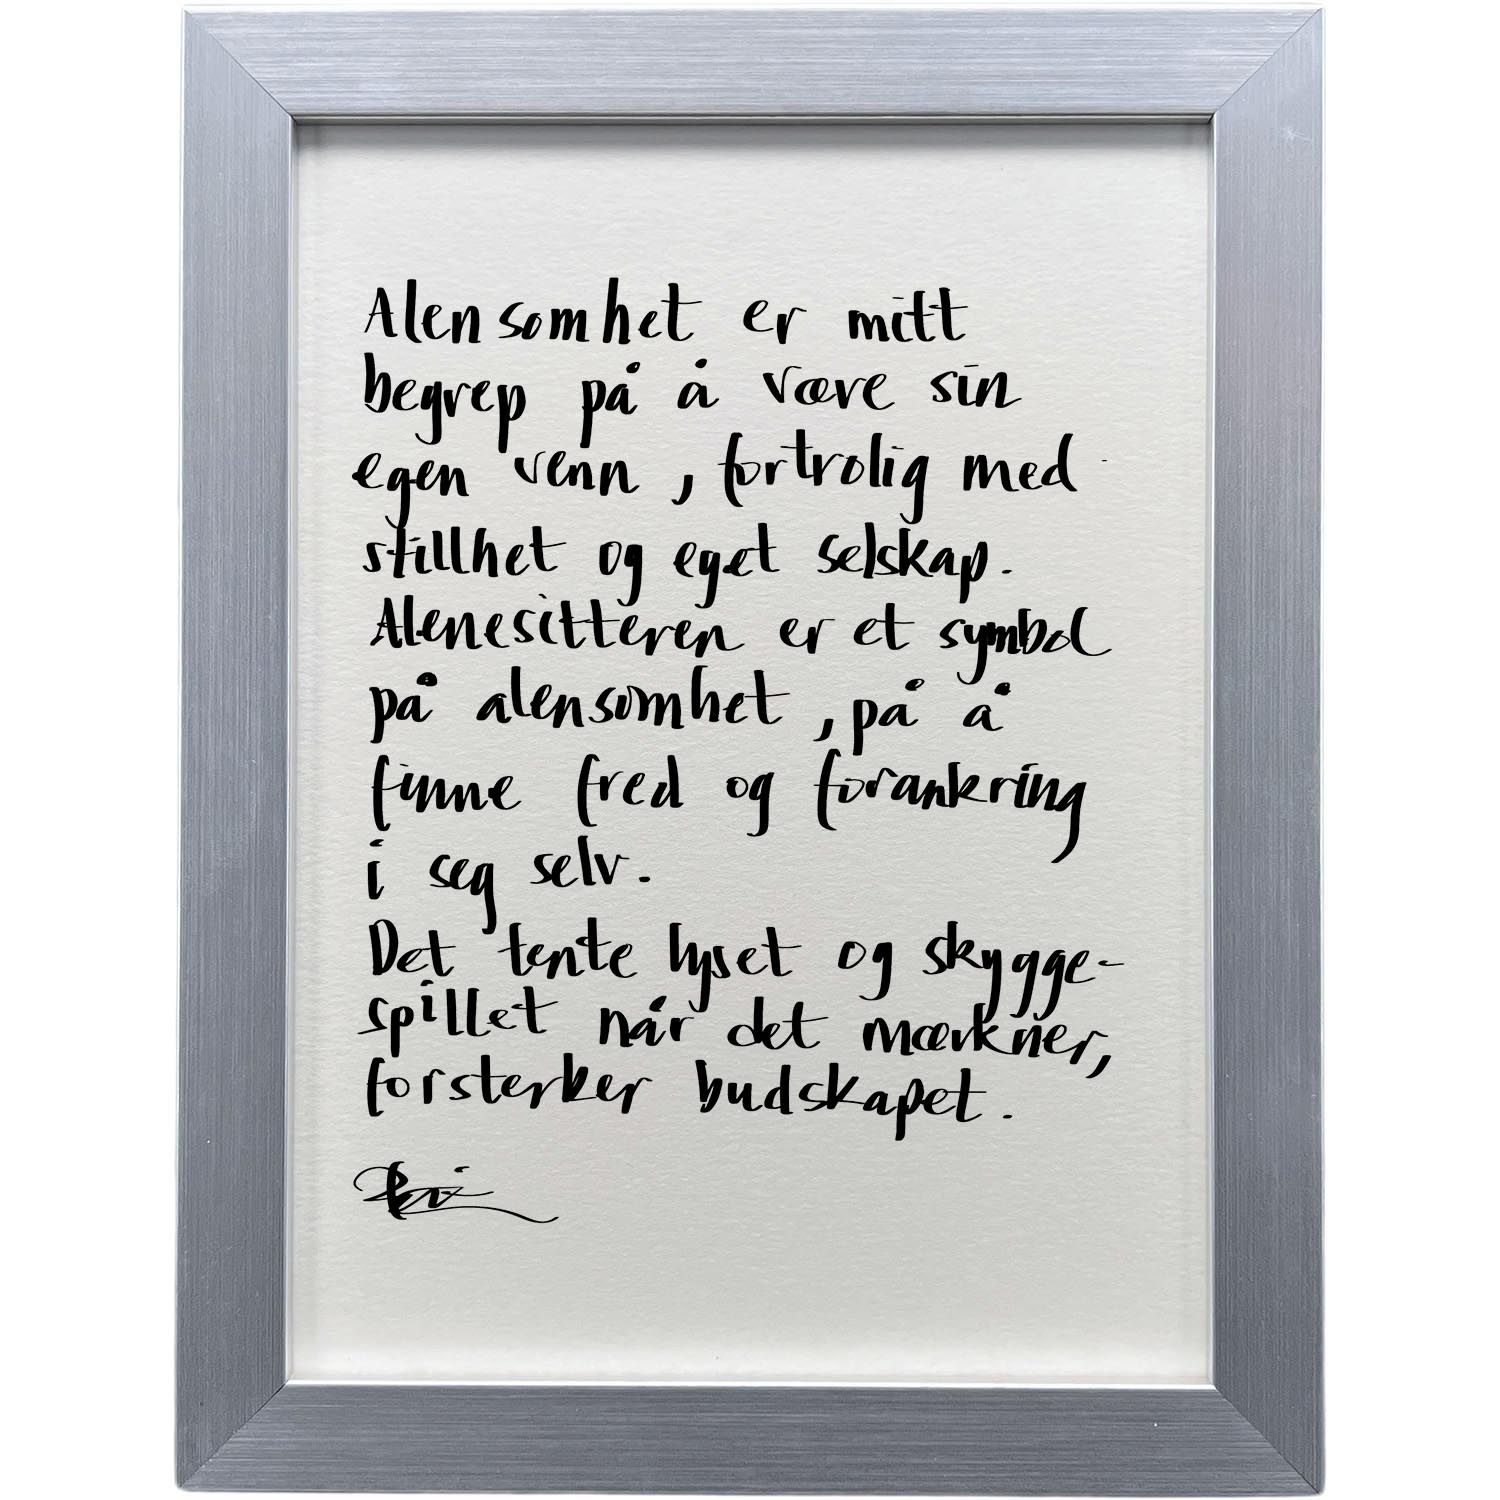 Alensomhet er mitt
begrep på å være sin
egen venn, fortrolig med
stillhet og eget selskap.
Alenesitteren er et symbol
på alensomhet, på å
finne fred og forankring
i seg selv.
Det tente lyset og skygge-
spillet når det mørkner,
forsterker budskapet.